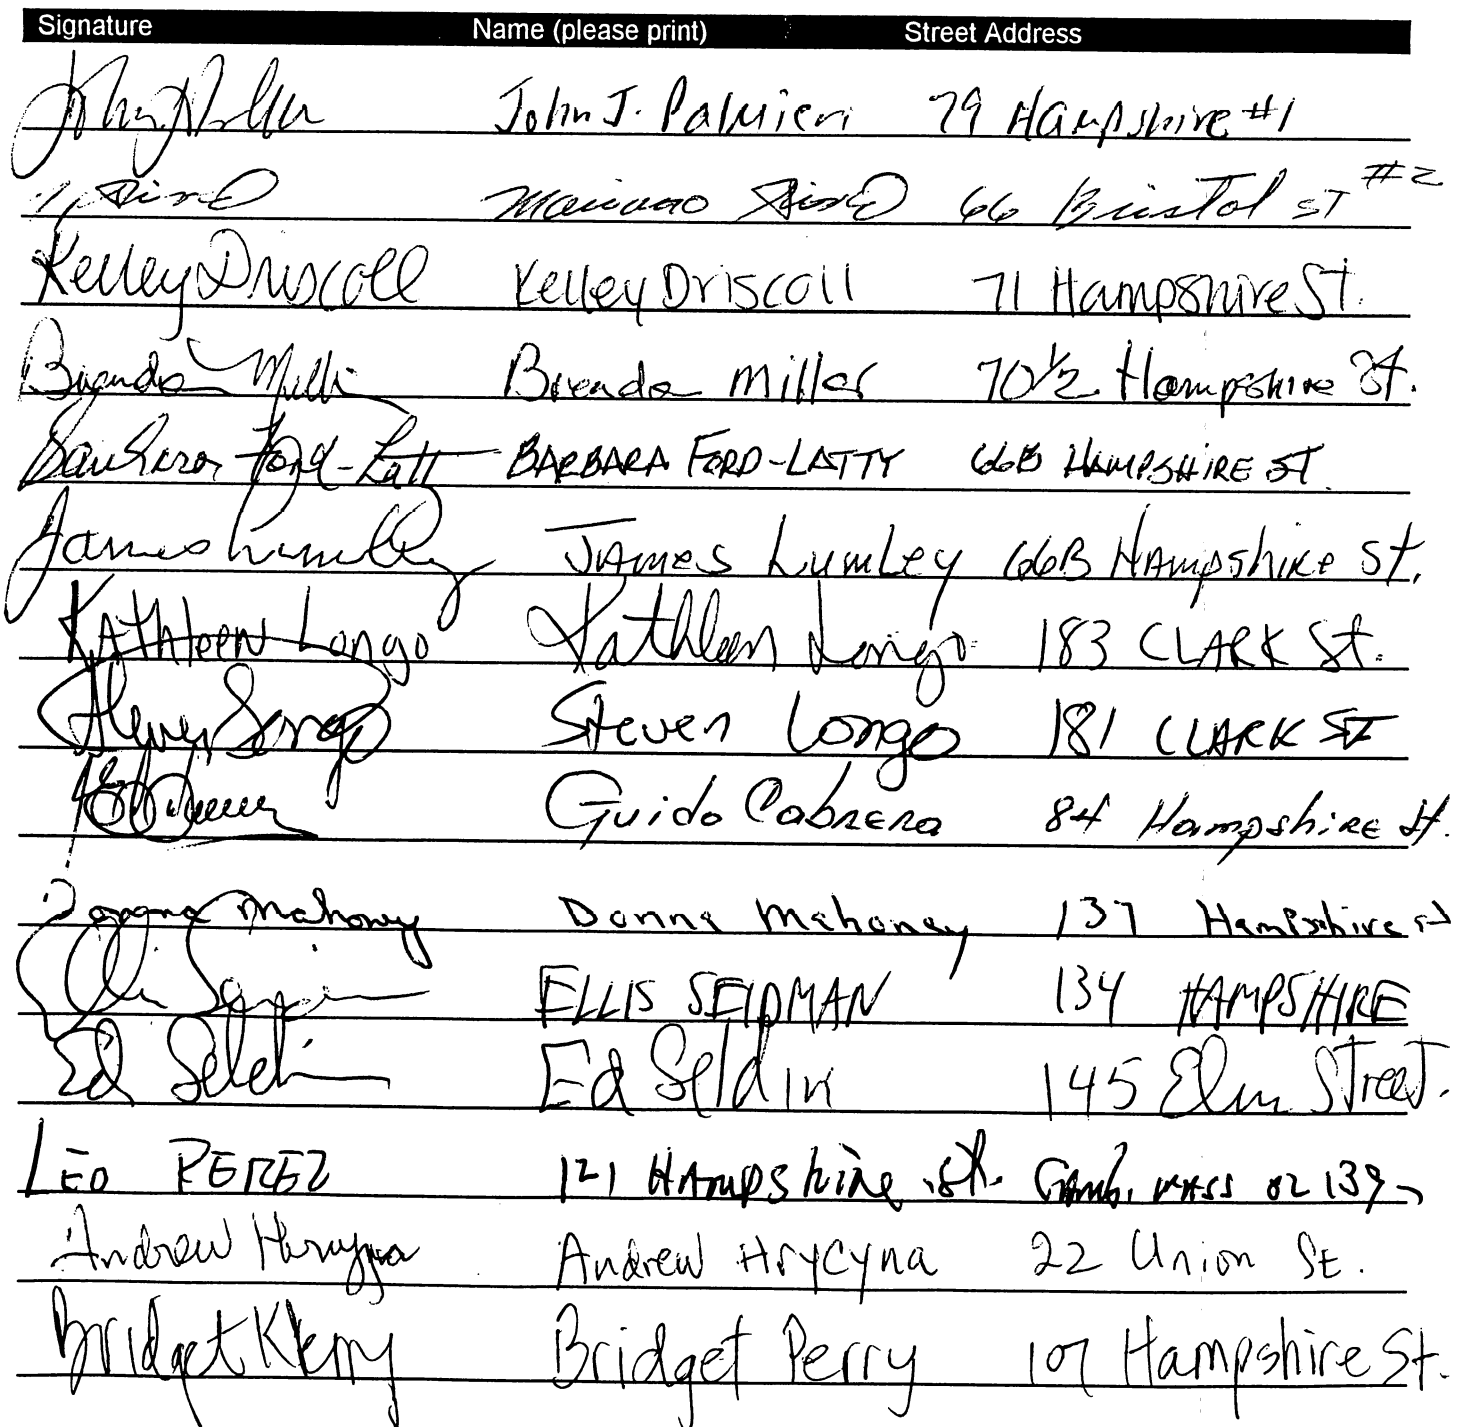 Signature Name (please print) Street Address
John J. Palmieri 79 Hampshire #1
66 Bristol ST #2
Kelley Driscoll Kelley Driscoll 71 Hampshire St.
Brenda Miller Brenda Miller 70 1/2 Hampshire St.
Barbara Ford-Latty BARBARA FORD-LATTY 66B HAMPSHIRE ST.
James Lumley JAMES LUMLEY 66B HAMPSHIRE St.
KATHleen Longo Kathleen Longo 183 CLARK St.
Steven Longo Steven Longo 181 CLARK ST
Guido Cabrera 84 Hampshire St.
Donna Mahoney Donna Mahoney 137 Hampshire st
ELLIS SEIDMAN 134 HAMPSHIRE
Ed Seldin Ed Seldin 145 Elm Street.
LEO PEREZ 121 HAMPShire st. Camb. MASS 02139
Andrew Hrycyna Andrew Hrycyna 22 Union St.
Bridget K Perry Bridget Perry 107 Hampshire St.